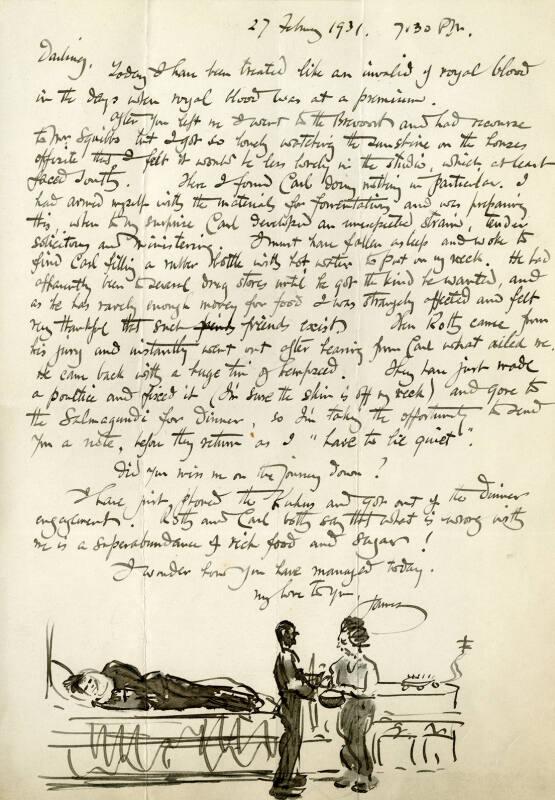 27 February 1931. 7.30 P.M.
Darling. Today I have been treated like an invalid of royal blood
in the days when royal blood was at a premium.
After you left me I went to the Brevoort and had recourse
to Mr. Squibb, but I got so lonely watching the sunshine on the houses
opposite that I felt it would be less lonely in the studio, which at least
faced South. Here I found Carl doing nothing in particular. I
had armed myself with the materials for fomentations and was preparing
this, when to my surprise Carl developed an unexpected strain, tender
solicitous and ministering. I must have fallen asleep and woke to
find Carl filling a rubber bottle with hot water to put on my neck. He had
apparently been to several drug stores until he got the kind he wanted, and
as he has rarely enough money for food I was strangely affected and felt
very thankful that such friends exist. Then Rotts came from
his jury and instantly went out after hearing from Carl what ailed me.
He came back with a huge tin of They have just made
a poultice and fixed it (I'm sure the skin is off my neck) and gone to
the Salmagundi for dinner, so I'm taking the opportunity to send
you a note, before they return as I "have to lie quiet".
Did you miss me on the journey down?
I have just phoned the and got out of the dinner
engagement. Rotts and Carl both say that what is wrong with
me is a superabundance of rich food and sugar!
I wonder how you have managed today.
My love to you
James